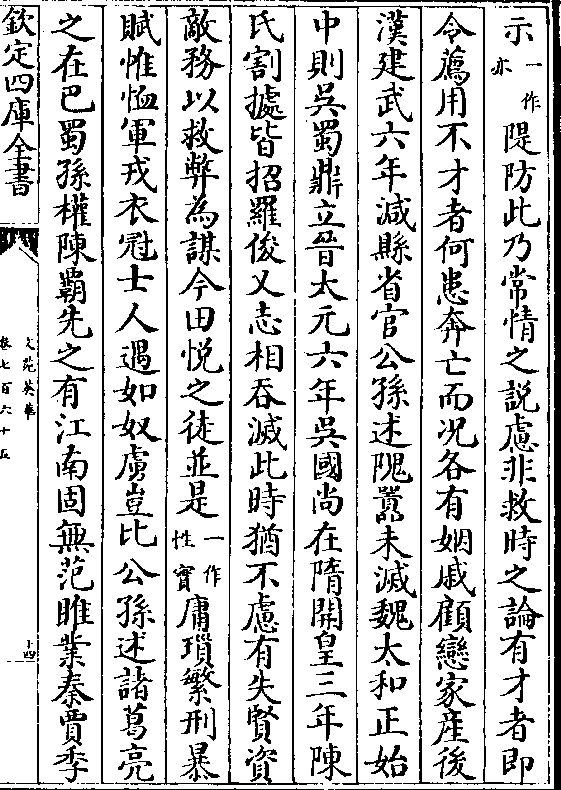 示一作亦隄防此乃常情之説慮非救時之論有才者即
令薦用不才者何患奔亡而况各有姻戚顧戀家産後
漢建武六年減縣省官公孫述隗囂未滅魏太和正始
中則吳蜀鼎立晉太元六年吳國尚在隋開皇三年陳
氏割據皆招羅俊乂志相吞滅此時猶不慮有失賢資
敵務以救弊為謀今田悦之徒並是一作性實庸瑣繁刑暴
賦惟恤軍戎衣冠士人遇如奴虜豈比公孫述諸葛亮
之在巴蜀孫權陳霸先之有江南固無范睢業秦賈季
欽定四庫全書
文苑英華
卷七百六十五
十四